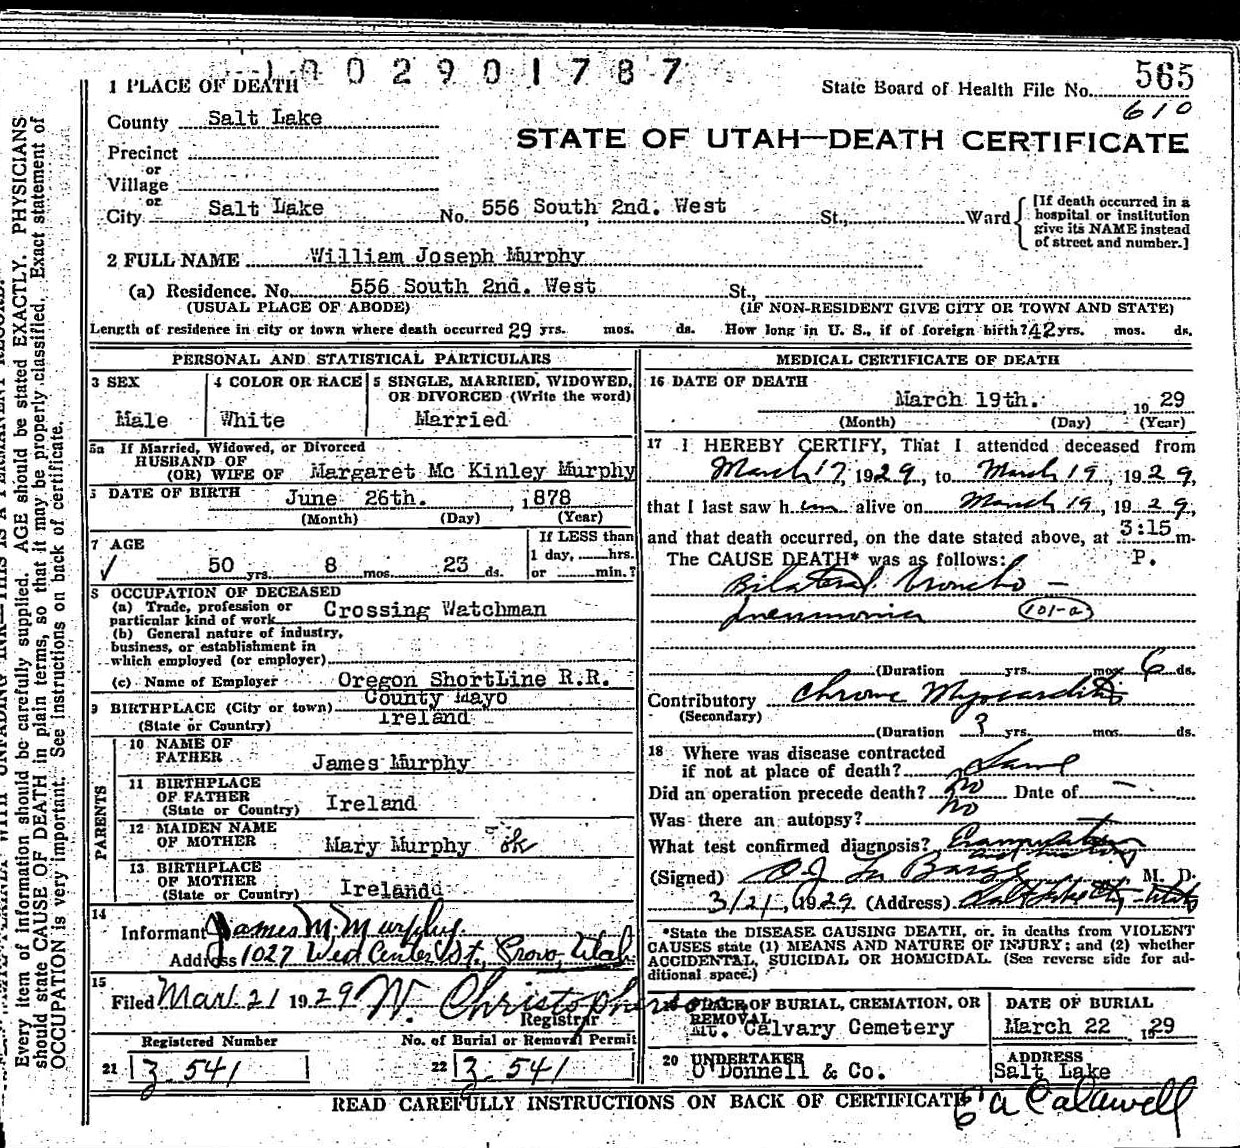 1002901787
1 PLACE OF DEATH
State Board of Health File No. 565
610
County Salt Lake
STATE OF UTAH—DEATH CERTIFICATE
Precinct
or
Village
or
City Salt Lake No. 556 South 2nd. West St., Ward
[If death occurred in a
hospital or institution
give its NAME instead
of street and number.]
2 FULL NAME William Joseph Murphy
(a) Residence. No. 556 South 2nd. West St.,
(USUAL PLACE OF ABODE) (IF NON-RESIDENT GIVE CITY OR TOWN AND STATE)
Length of residence in city or town where death occurred 29 yrs. mos. ds. How long in U. S., if of foreign birth? 42 yrs. mos. ds.
PERSONAL AND STATISTICAL PARTICULARS
3 SEX
Male
4 COLOR OR RACE
White
5 SINGLE, MARRIED, WIDOWED,
OR DIVORCED (Write the word)
Married
5a If Married, Widowed, or Divorced
HUSBAND OF
(OR) WIFE OF Margaret Mc Kinley Murphy
DATE OF BIRTH June 26th. , 1878
(Month) (Day) (Year)
7 AGE
50 yrs. 8 mos. 23 ds.
If LESS than
1 day, hrs.
or min.?
8 OCCUPATION OF DECEASED
(a) Trade, profession or
particular kind of work Crossing Watchman
(b) General nature of industry,
business, or establishment in
which employed (or employer)
(c) Name of Employer Oregon ShortLine R.R.
9 BIRTHPLACE (City or town) County Mayo
(State or Country) Ireland
PARENTS
10 NAME OF
FATHER James Murphy
11 BIRTHPLACE
OF FATHER
(State or Country) Ireland
12 MAIDEN NAME
OF MOTHER Mary Murphy ok
13 BIRTHPLACE
OF MOTHER
(State or Country) Irelandd
14
Informant James M. Murphy
Address 1027 West Center St., Provo, Utah
15
Filed Mar 21 1929 W. Christopherson
Registrar
Registered Number
21 3-541
No. of Burial or Removal Permit
22 3-541
MEDICAL CERTIFICATE OF DEATH
16 DATE OF DEATH
March 19th. , 1929
(Month) (Day) (Year)
17 I HEREBY CERTIFY, That I attended deceased from
March 17, 1929, to March 19, 1929,
that I last saw him alive on March 19, 1929,
and that death occurred, on the date stated above, at 3:15 m.
The CAUSE DEATH* was as follows: P.
Bilateral Broncho-
pneumonia 101-a
(Duration yrs. mos. 6 ds.
Contributory Chronic Myocarditis
(Secondary)
(Duration 3 yrs. mos. ds.
18 Where was disease contracted
if not at place of death? Same
Did an operation precede death? no Date of —
Was there an autopsy? no
What test confirmed diagnosis?
(Signed) O J La Barge M. D.
3/21, 1929 (Address) Salt Lake City - Utah
*State the DISEASE CAUSING DEATH, or. in deaths from VIOLENT
CAUSES state (1) MEANS AND NATURE OF INJURY; and (2) whether
ACCIDENTAL, SUICIDAL OR HOMICIDAL. (See reverse side for ad-
ditional space.)
19 PLACE OF BURIAL, CREMATION, OR
REMOVAL
Mt. Calvary Cemetery
DATE OF BURIAL
March 22 , 1929
20 UNDERTAKER
O'Donnell & Co.
ADDRESS
Salt Lake
READ CAREFULLY INSTRUCTIONS ON BACK OF CERTIFICATE
Every item of information should be carefully supplied. AGE should be stated EXACTLY. PHYSICIANS
should state CAUSE OF DEATH in plain terms, so that it may be properly classified. Exact statement of
OCCUPATION is very important. See instructions on back of certificate.